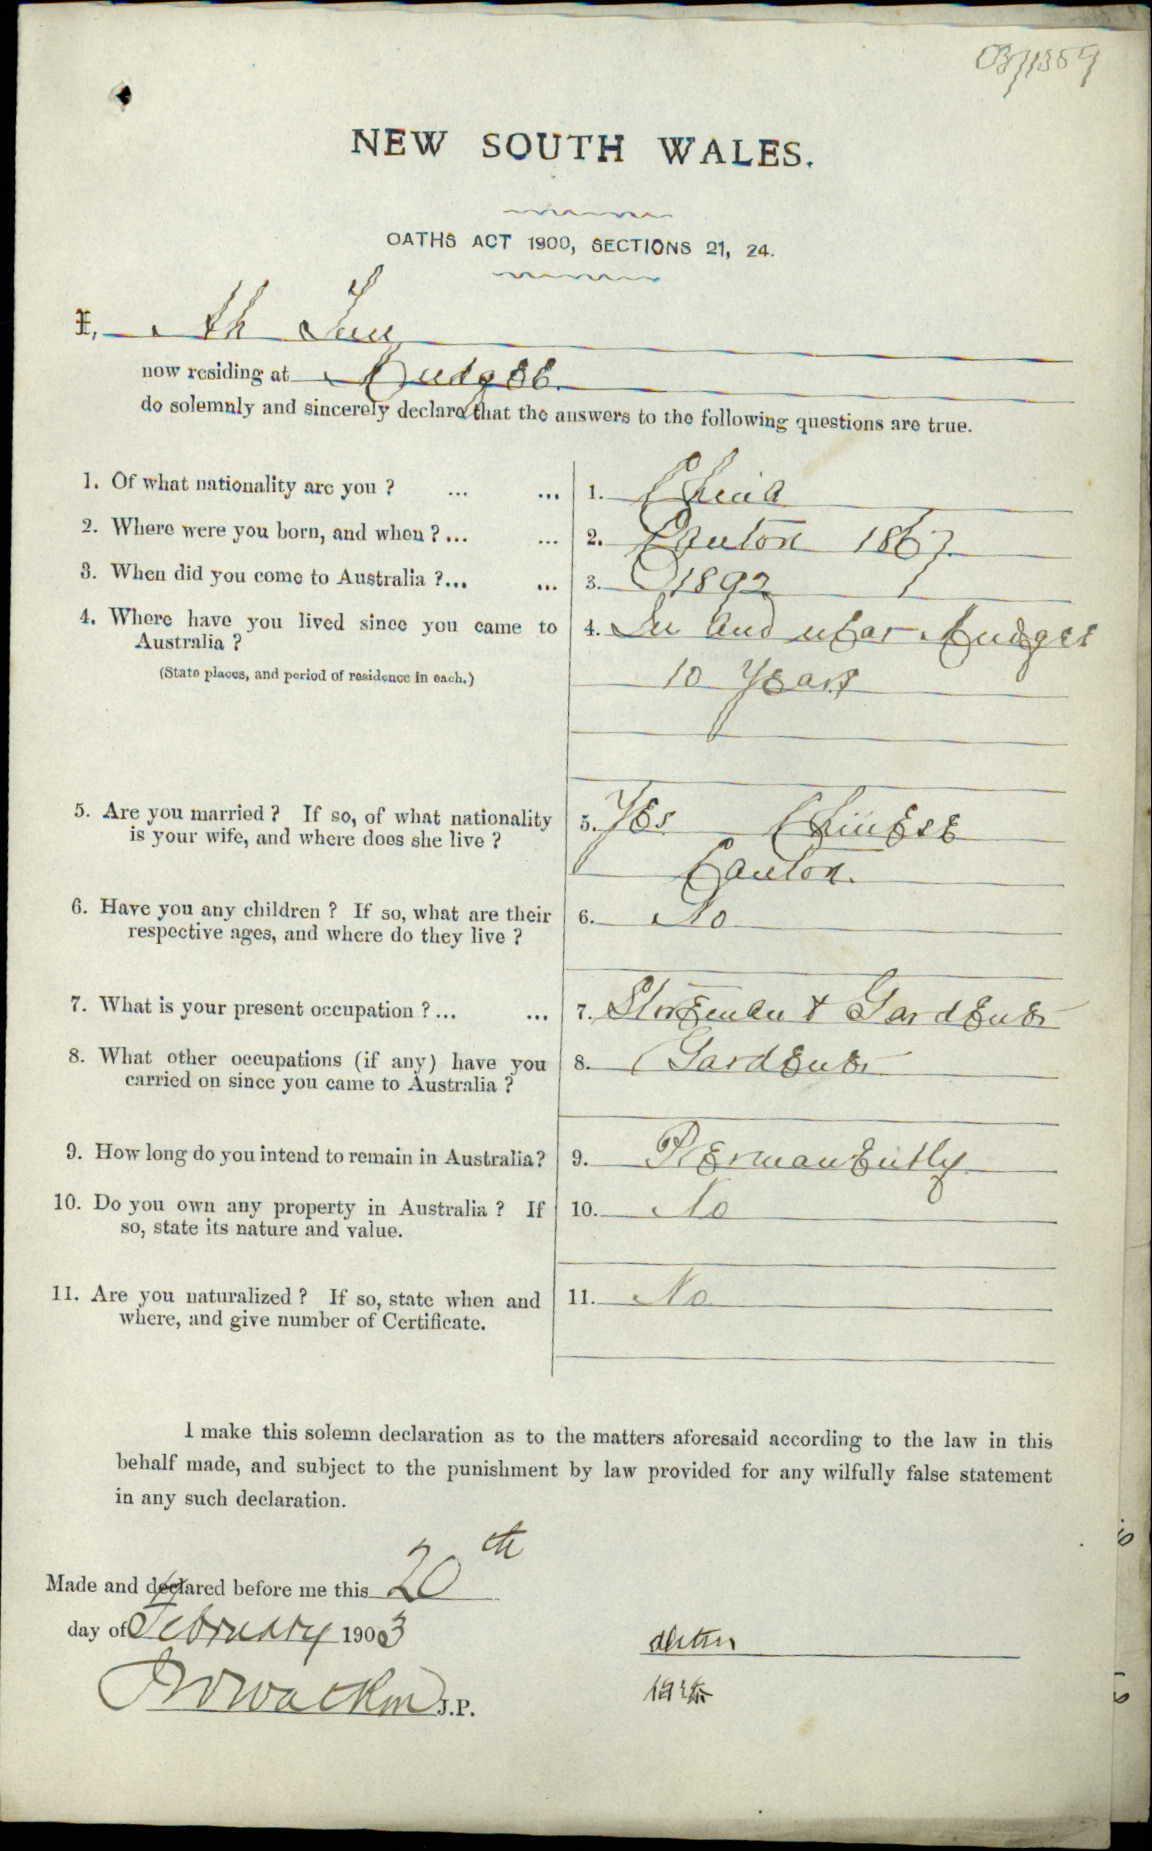 03/1359
NEW SOUTH WALES.
OATHS ACT 1900, SECTIONS 21, 24.
I, Ah
now residing at Mudgee
do solemnly and sincerely declare that the answers to the following questions are true.
1. Of what nationality are you ? ... ... 1. China
2. Where were you born, and when ? ... ... 2. Canton 1867
3. When did you come to Australia ?... ... 3. 1892
4. Where have you lived since you came to 4. In and near Mudgee
Australia ?
(State places, and period of residence in each.) 10 Years
5. Are you married ? If so, of what nationality 5. Yes Chinese
is your wife, and where does she live ?
Canton.
6. Have you any children ? If so, what are their 6. No
respective ages, and where do they live ?
7. What is your present occupation ? ... ... 7. Storeman & Gardener
8. What other occupations (if any) have you 8. Gardener
carried on since you came to Australia ?
9. How long do you intend to remain in Australia? 9. Permanently
10. Do you own any property in Australia ? If 10. No
so, state its nature and value.
11. Are you naturalized ? If so, state when and 11. No
where, and give number of Certificate.
I make this solemn declaration as to the matters aforesaid according to the law in this
behalf made, and subject to the punishment by law provided for any wilfully false statement
in any such declaration.
Made and declared before me this 20th
day of February 1903
J.P.